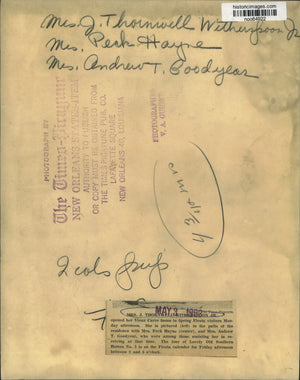 historicimages.com
noo64922
Mrs. J. Thornwell Witherspoon Jr
Mrs. Perk Hayne
Mrs. Andrew T. Goodyear
PHOTOGRAPH BY
The Times-Picayune
NEW ORLEANS STATES-ITEM
AUTHORITY TO PUBLISH
OR COPY MUST BE OBTAINED FROM
THE TIMES PICAYUNE PUB. CO.
LAFAYETTE SQUARE
NEW ORLEANS-40, LOUISIANA
PHOTOGRAPHER
V. A.
2 cols
MAY 3
MRS. J. THORNWELL WITHERSPOON JR.
opened her Vieux Carre house to Spring Fiesta visitors Mon-
day afternoon. She is pictured (left) in the patio of the
residence with Mrs. Perk Hayne (center), and Mrs. Andrew
T. Goodyear, who were among those assisting her in re-
ceiving at that time. The tour of Lovely Old Southern
Homes No. 2 is on the Fiesta calendar for Friday afternoon
between 2 and 5 o'clock.